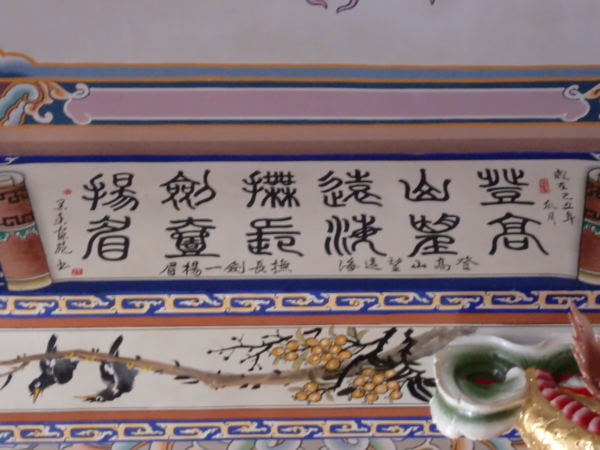 歲在己丑年
瓜月
登高
山望
遠海
撫長
劍壹
揚眉
登高山望遠海
撫長劍一楊眉